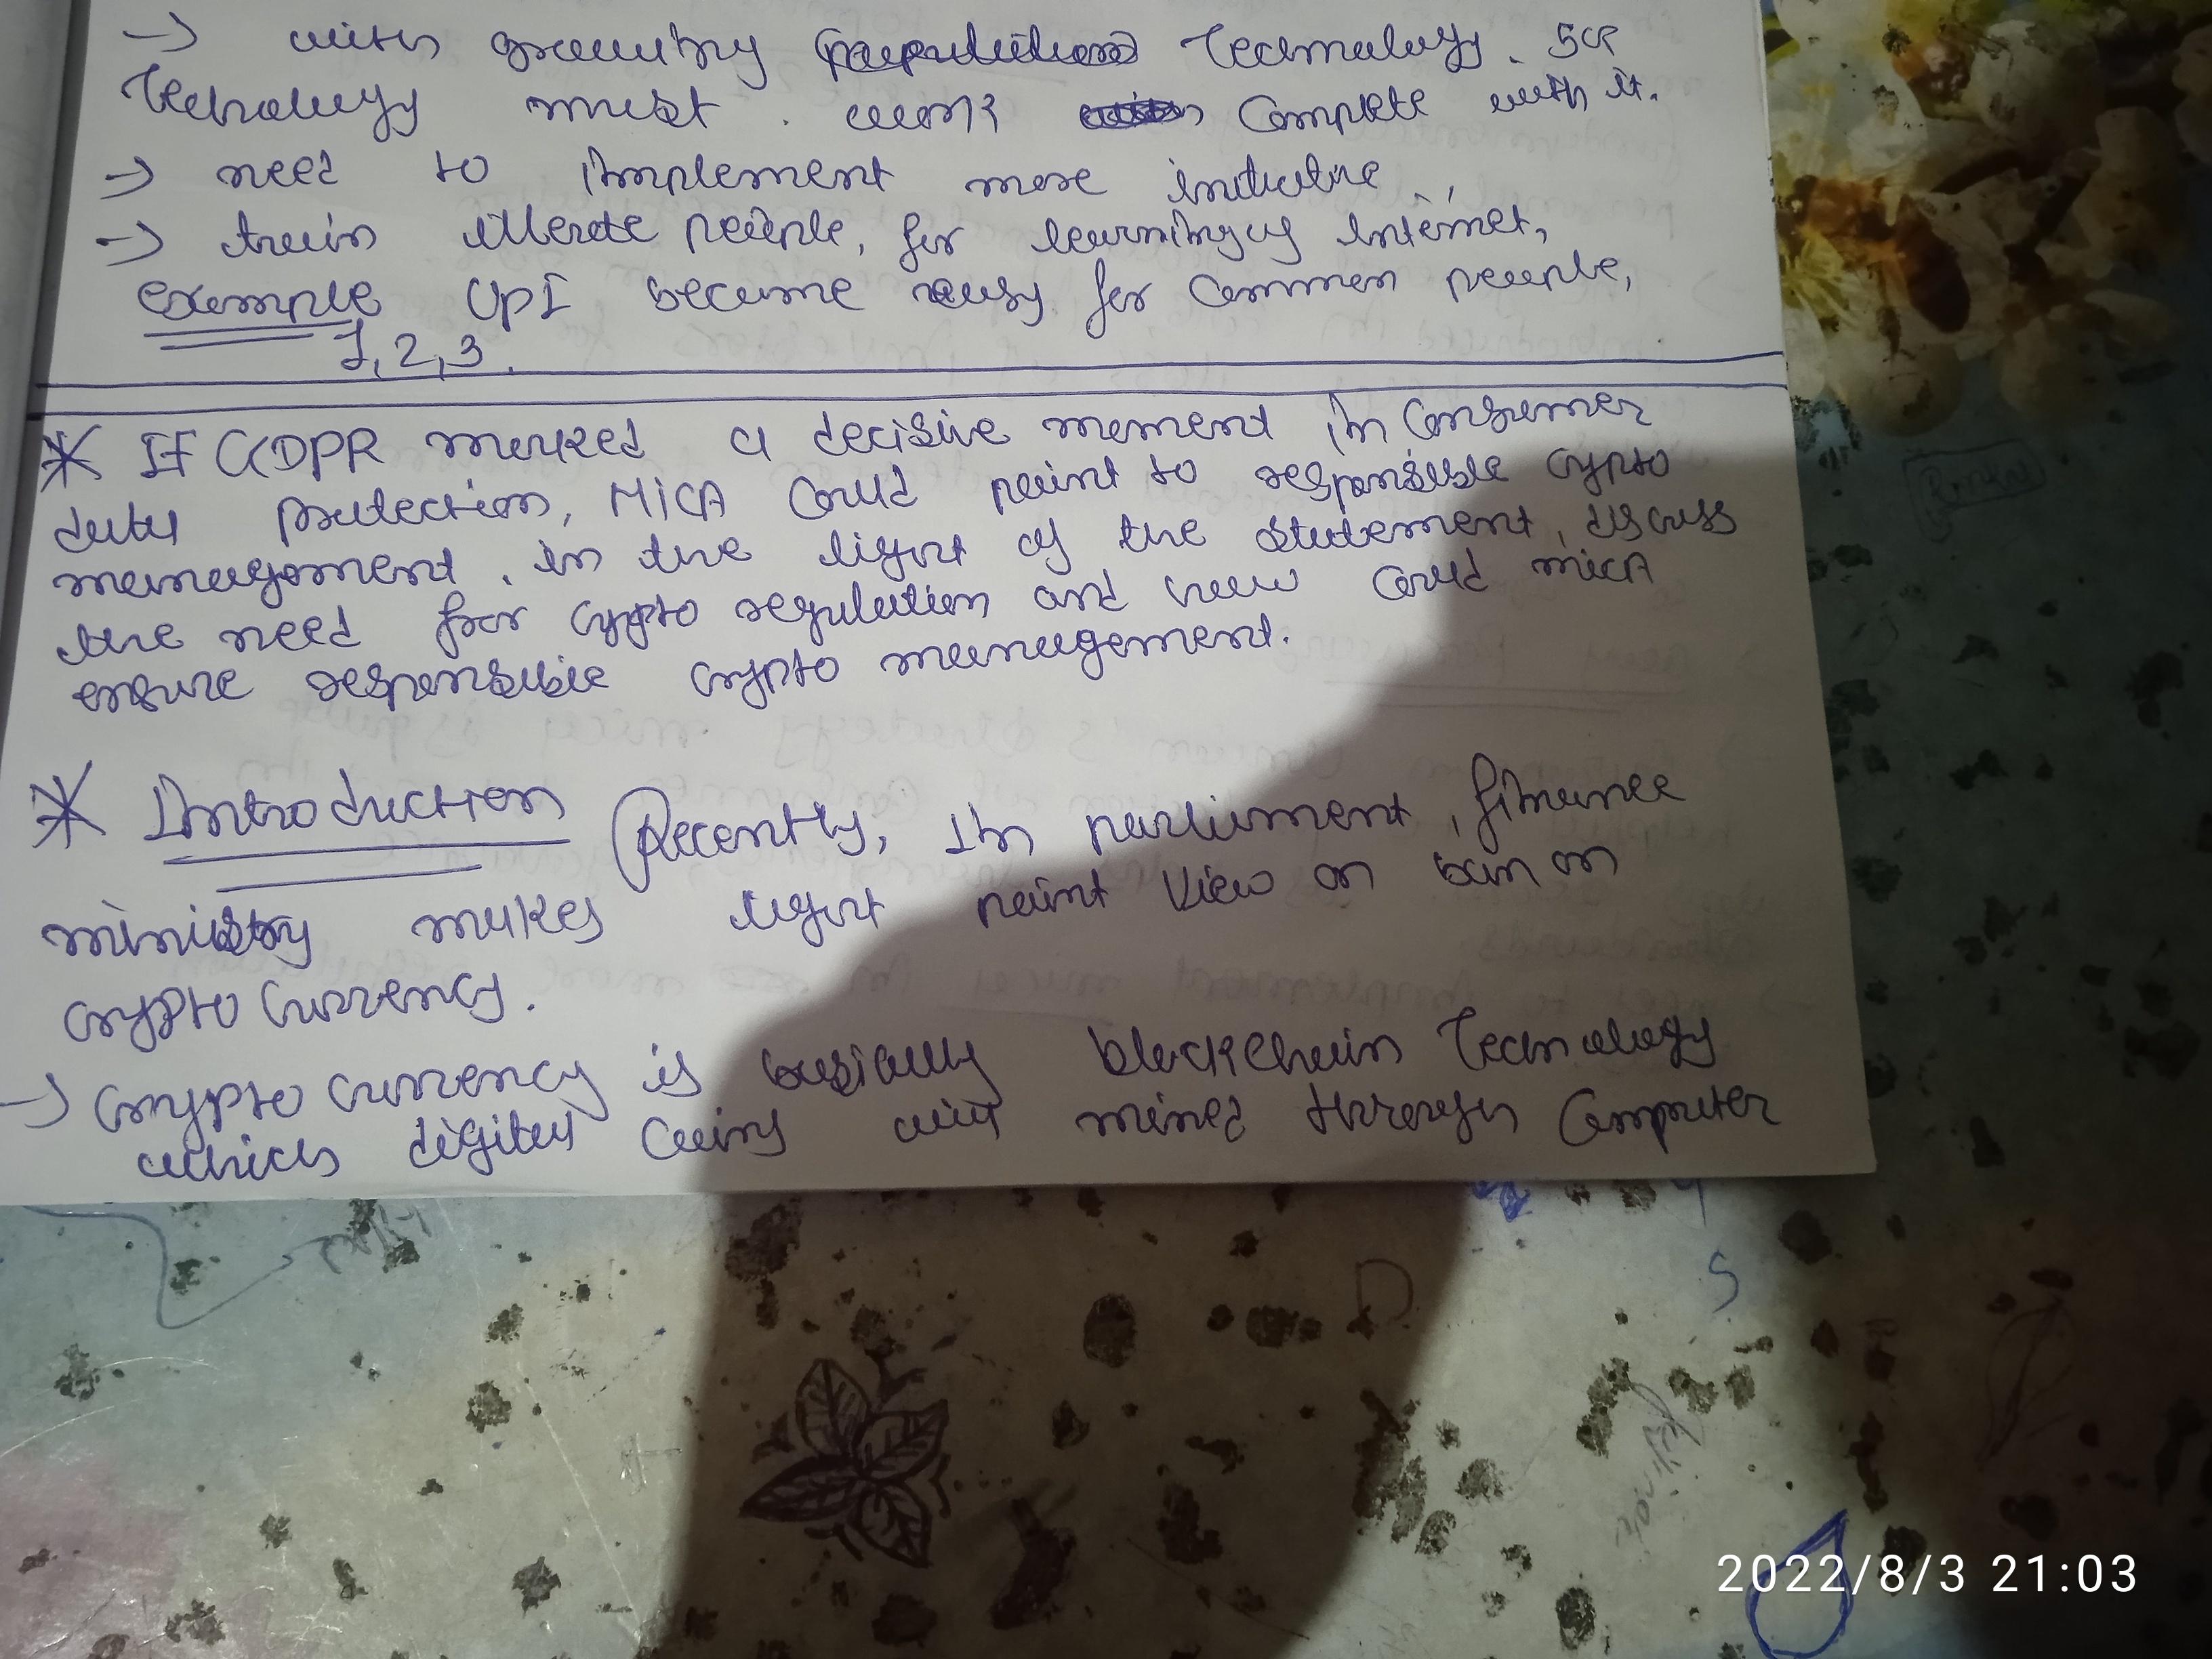 → with growing Technology. 5G
Technology must work Complete with it.
→ need to implement more initiative.
→ train illerate people, for learning of internet,
example UPI become easy for common people,
1, 2, 3.
* If GDPR marked a decisive moment in Consumer
data protection, MiCA could point to responsible crypto
management. in the light of the statement, discuss
the need for crypto regulation and how could MiCA
ensure responsible crypto management.
* Introduction Recently, In parliament, finance
ministry makes light point view on ban on
crypto currency.
→ crypto currency is basically blockchain Technology
which digital coins will mined through Computer
2022/8/3 21:03